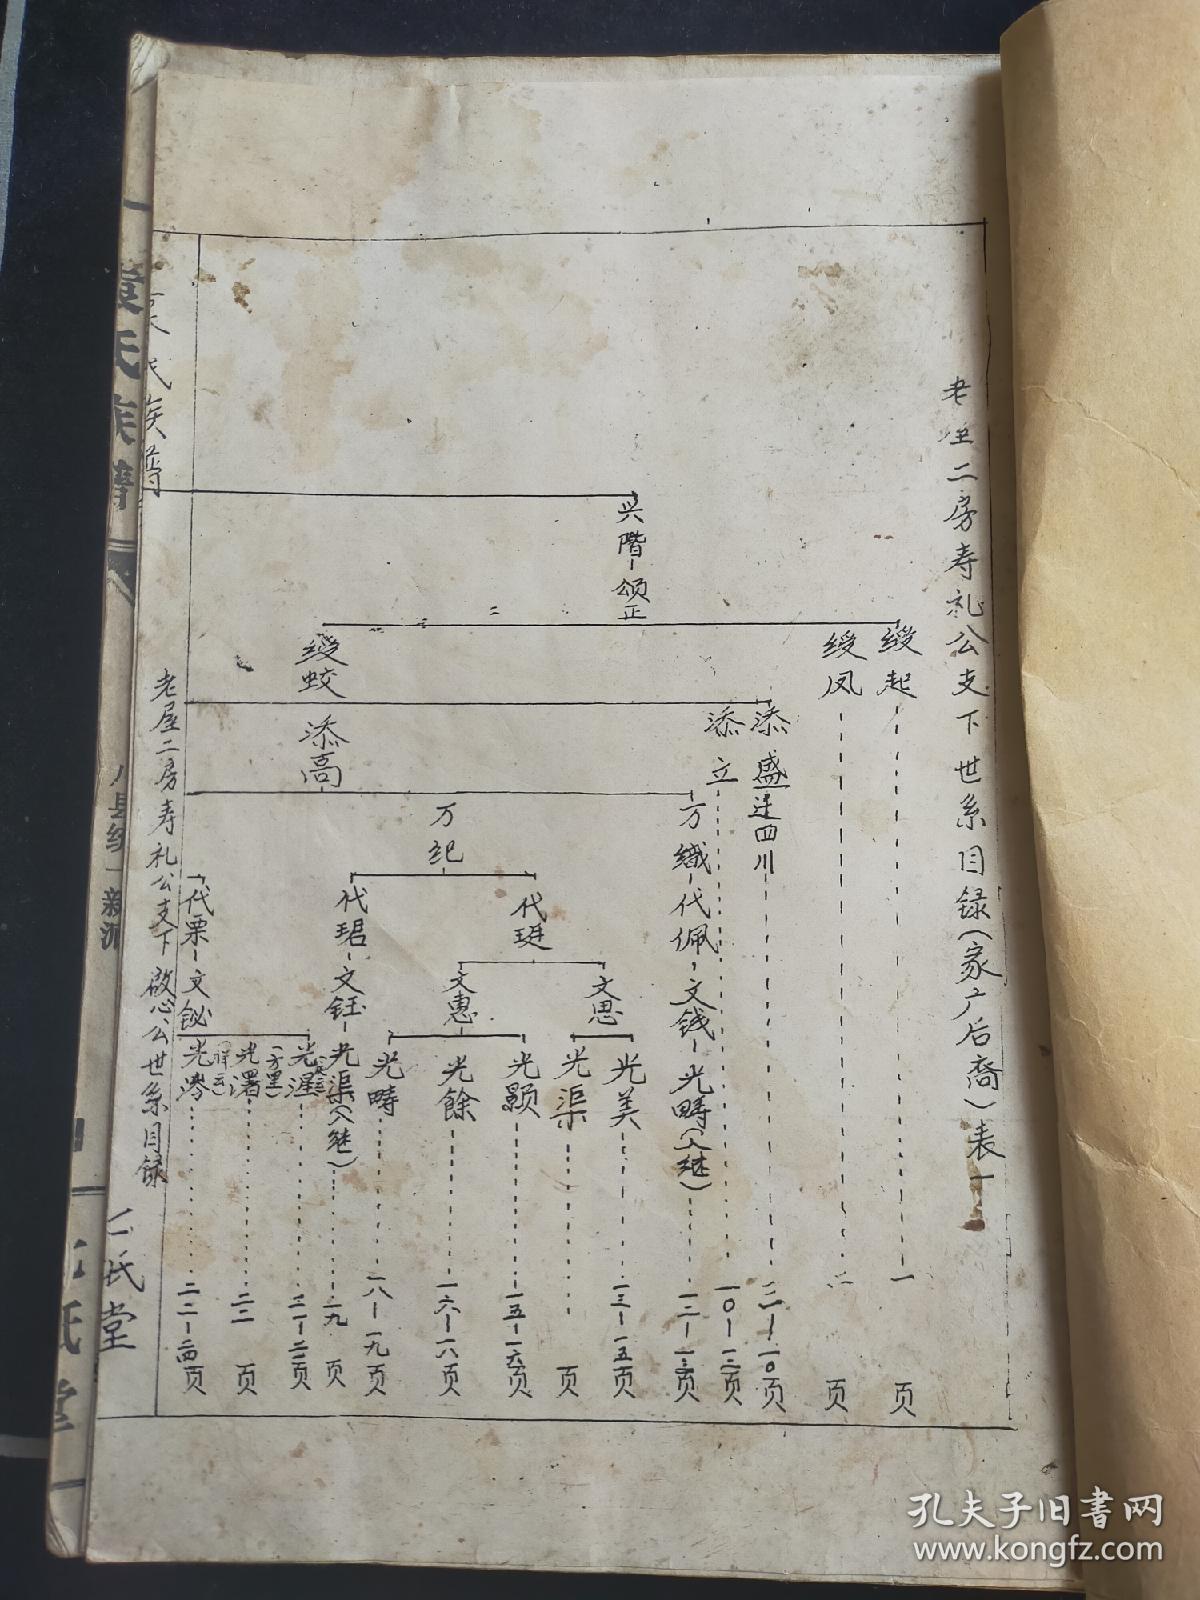 老屋二房寿礼公支下世系目录(家广后裔)表一
兴階-颂正
绶起 一页
绶凤 二页
绶蛟
添盛迁四川 二-一〇页
添立 一〇-一二页
添高
万織-代佩-文钱-光疇(入继) 一二-一三页
万纪
代琎
代珺-文钰-光渠(入继) 一九页
文思
文惠
光美 一三-一五页
光渠 页
光颢 一五-一六页
光餘 一六-一八页
光疇 一八-一九页
代栗-文鉍
光渥 二一-二二页
光濖 二二页
光湾 二二-二四页
老屋二房寿礼公支下啟心公世系目录
氏族譜
氏堂
氏族譜
孔夫子旧书网
www.kongfz.com